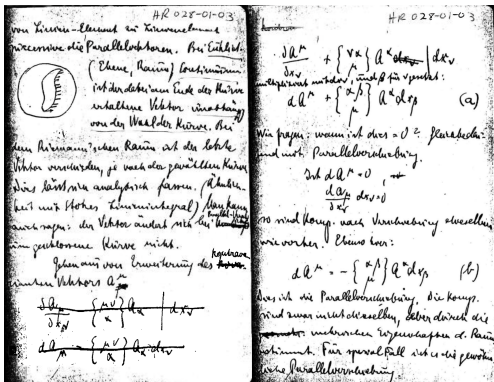 HR 028-01-03
von Linien-Element zu Linienelement
successive die Parallelvektoren. Bei Euklid.
(Ebene, Raum) Continuum
ist der bei dem Ende der Kurve
erhaltene Vektor unabhäng
von der Wahl der Kurve. Bei
dem Riemann'schen Raum ist der letzte
Vektor verschieden, je nach der gewählten Kurve
Dies lässt sich analytisch fassen. (Ähnlich-
keit mit Stokes Linienintegral) Man kann
auch sagen: der Vektor ändert sich bei
um geschlossene Kurve nicht.
Gehen aus von Erweiterung des kontrava
rianten Vektors A^μ
∂A_μ/∂x_ν - {μν α} A_α | dx_ν
dA_μ - {μν α} A_α dx_ν
HR 028-01-03
∂A^μ/∂x_ν + {να μ} A^α | dx_ν
multipliziert mit dx_ν, und β für ν gesetzt:
dA^μ + {αβ μ} A^α dx_β (a)
Wir fragen: wann ist dies = 0?
und mit Parallelverschiebung.
Ist dA^μ = 0,
∂A^μ/∂x_ν dx_ν = 0
so sind Komp. nach Verschiebung dieselben
wie vorher. Ebenso hier:
dA^μ = - {αβ μ} A^α dx_β (b)
Das ist die Parallelverschiebung. Die Komp.
sind zwar nicht dieselben, aber durch die
metrischen Eigenschaften d. Raum
bestimmt. Für spezialfall ist es die gewöhn
liche Parallelverschiebung.